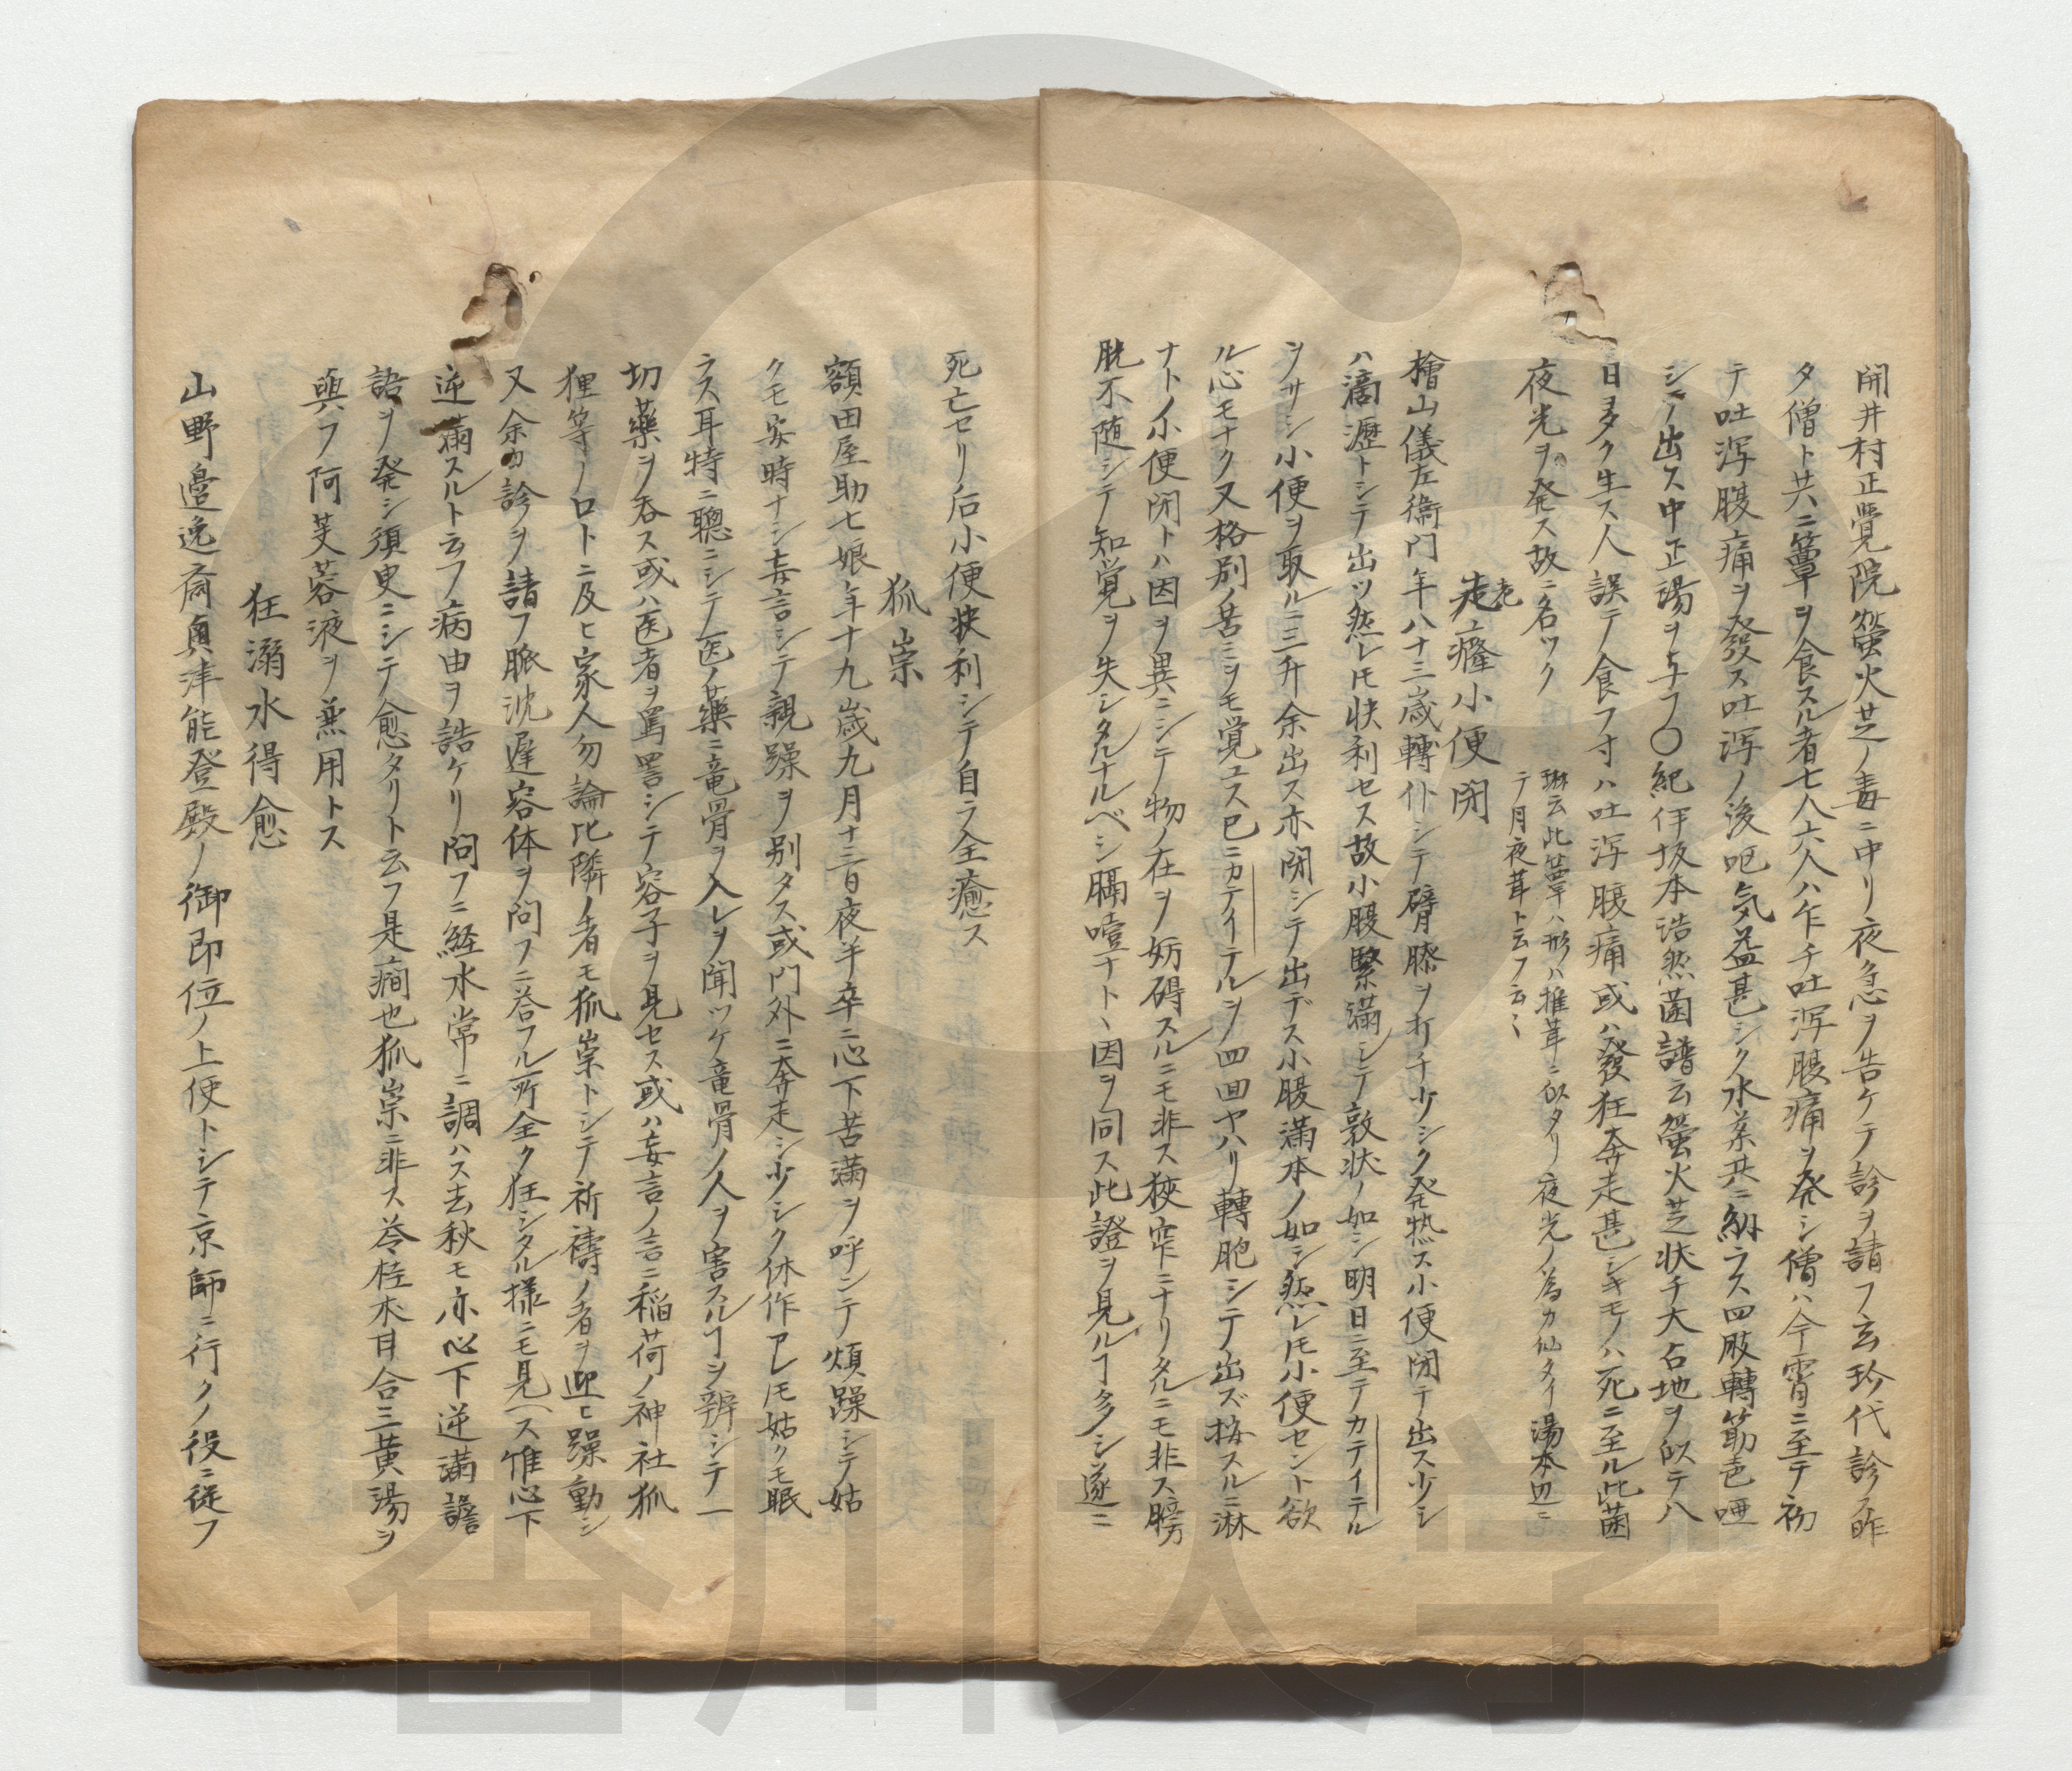 開井村正覺院螢火芝ノ毒ニ中リ夜急ヲ告ケテ診ヲ請フ玄珍代診ス昨
タ僧ト共ニ簟ヲ食スル者七人六人ハ乍チ吐瀉腹痛ヲ発シ僧ハ今宵ニ至テ初
テ吐瀉腹痛ヲ發ス吐瀉ノ後呃気益甚シク水薬共ニ納ラス四肢轉筋壱唖
シテ出ス中正湯ヲ与フ〇紀伊坂本浩然菌譜云螢火芝状チ大占地ヲ似テ八
日多ク生ス人誤テ食フ寸ハ吐瀉腹痛或ハ發狂奔走甚シキモノハ死ニ至ル此菌
夜光ヲ発ス故ニ名ツク
琳云此簟ハ形ハ推茸ニ似タリ夜光ノ為カ仙タイ湯本辺ニ
テ月夜茸ト云フ云〻
老癃小便閉
老
檜山儀左衛門年八十三歳轉仆シテ臂膝ヲ打チ少シク発熱ス小便閉テ出ス少シ
ハ滴瀝トシテ出ツ然レ𪜈快利セス故小腹緊満シテ敦状ノ如シ明日ニ至テカテイテル
ヲサシ小便ヲ取ルニ三升余出ス亦閉シテ出デス小腹満本ノ如シ然レ𪜈小便セント欲
ル心モナク又格別ノ苦ミヲモ覚ユス已ニカテイテルヲ四回ヤハリ轉胞シテ出ズ按スルニ淋
ナトノ小便閉トハ因ヲ異ニシテ物ノ在ヲ妨碍スルニモ非ス狹窄ニナリタルニモ非ス膀
胱不随シテ知覚ヲ失シタルナルベシ膈噎ナト丶因ヲ同ス此證ヲ見ルヿ多シ遂ニ
死亡セリ后小便快利シテ自ラ全癒ス
狐崇
額田屋助七娘年十九歳九月十三日夜半卒ニ心下苦満ヲ呼ンテ煩躁シテ姑
クモ安時ナシ妄言シテ親躁ヲ別タス或門外ニ奔走シ少シク休作アレ𪜈姑クモ眠
ラス耳特ニ聰ニシテ医ノ藥ニ竜骨ヲ入レヲ聞ツケ竜骨ノ人ヲ害スルヿヲ辨シテ一
切藥ヲ呑ス或ハ医者ヲ罵詈シテ容子ヲ見セス或ハ妄言ノ言ニ稲荷ノ神社狐
狸等ノロトニ及ヒ家人勿論比隣ノ者モ狐崇トシテ祈禱ノ者ヲ迎ヒ躁動シ
又余カ診ヲ請フ脈沈遅容体ヲ問フニ答フル所全ク狂シタル様ニモ見ヘス惟心下
逆満スルト云フ病由ヲ詰ケリ問フニ経水常ニ調ハス去秋モ亦心下逆満譫
語ヲ発シ須臾ニシテ愈タリト云フ是癇也狐崇ニ非ス苓桂朮甘合三黄湯ヲ
與フ阿芙蓉液ヲ兼用トス
狂溺水得愈
山野邉逸斎奥津能登殿ノ御即位ノ上使トシテ京師ニ行クノ役ニ従フ